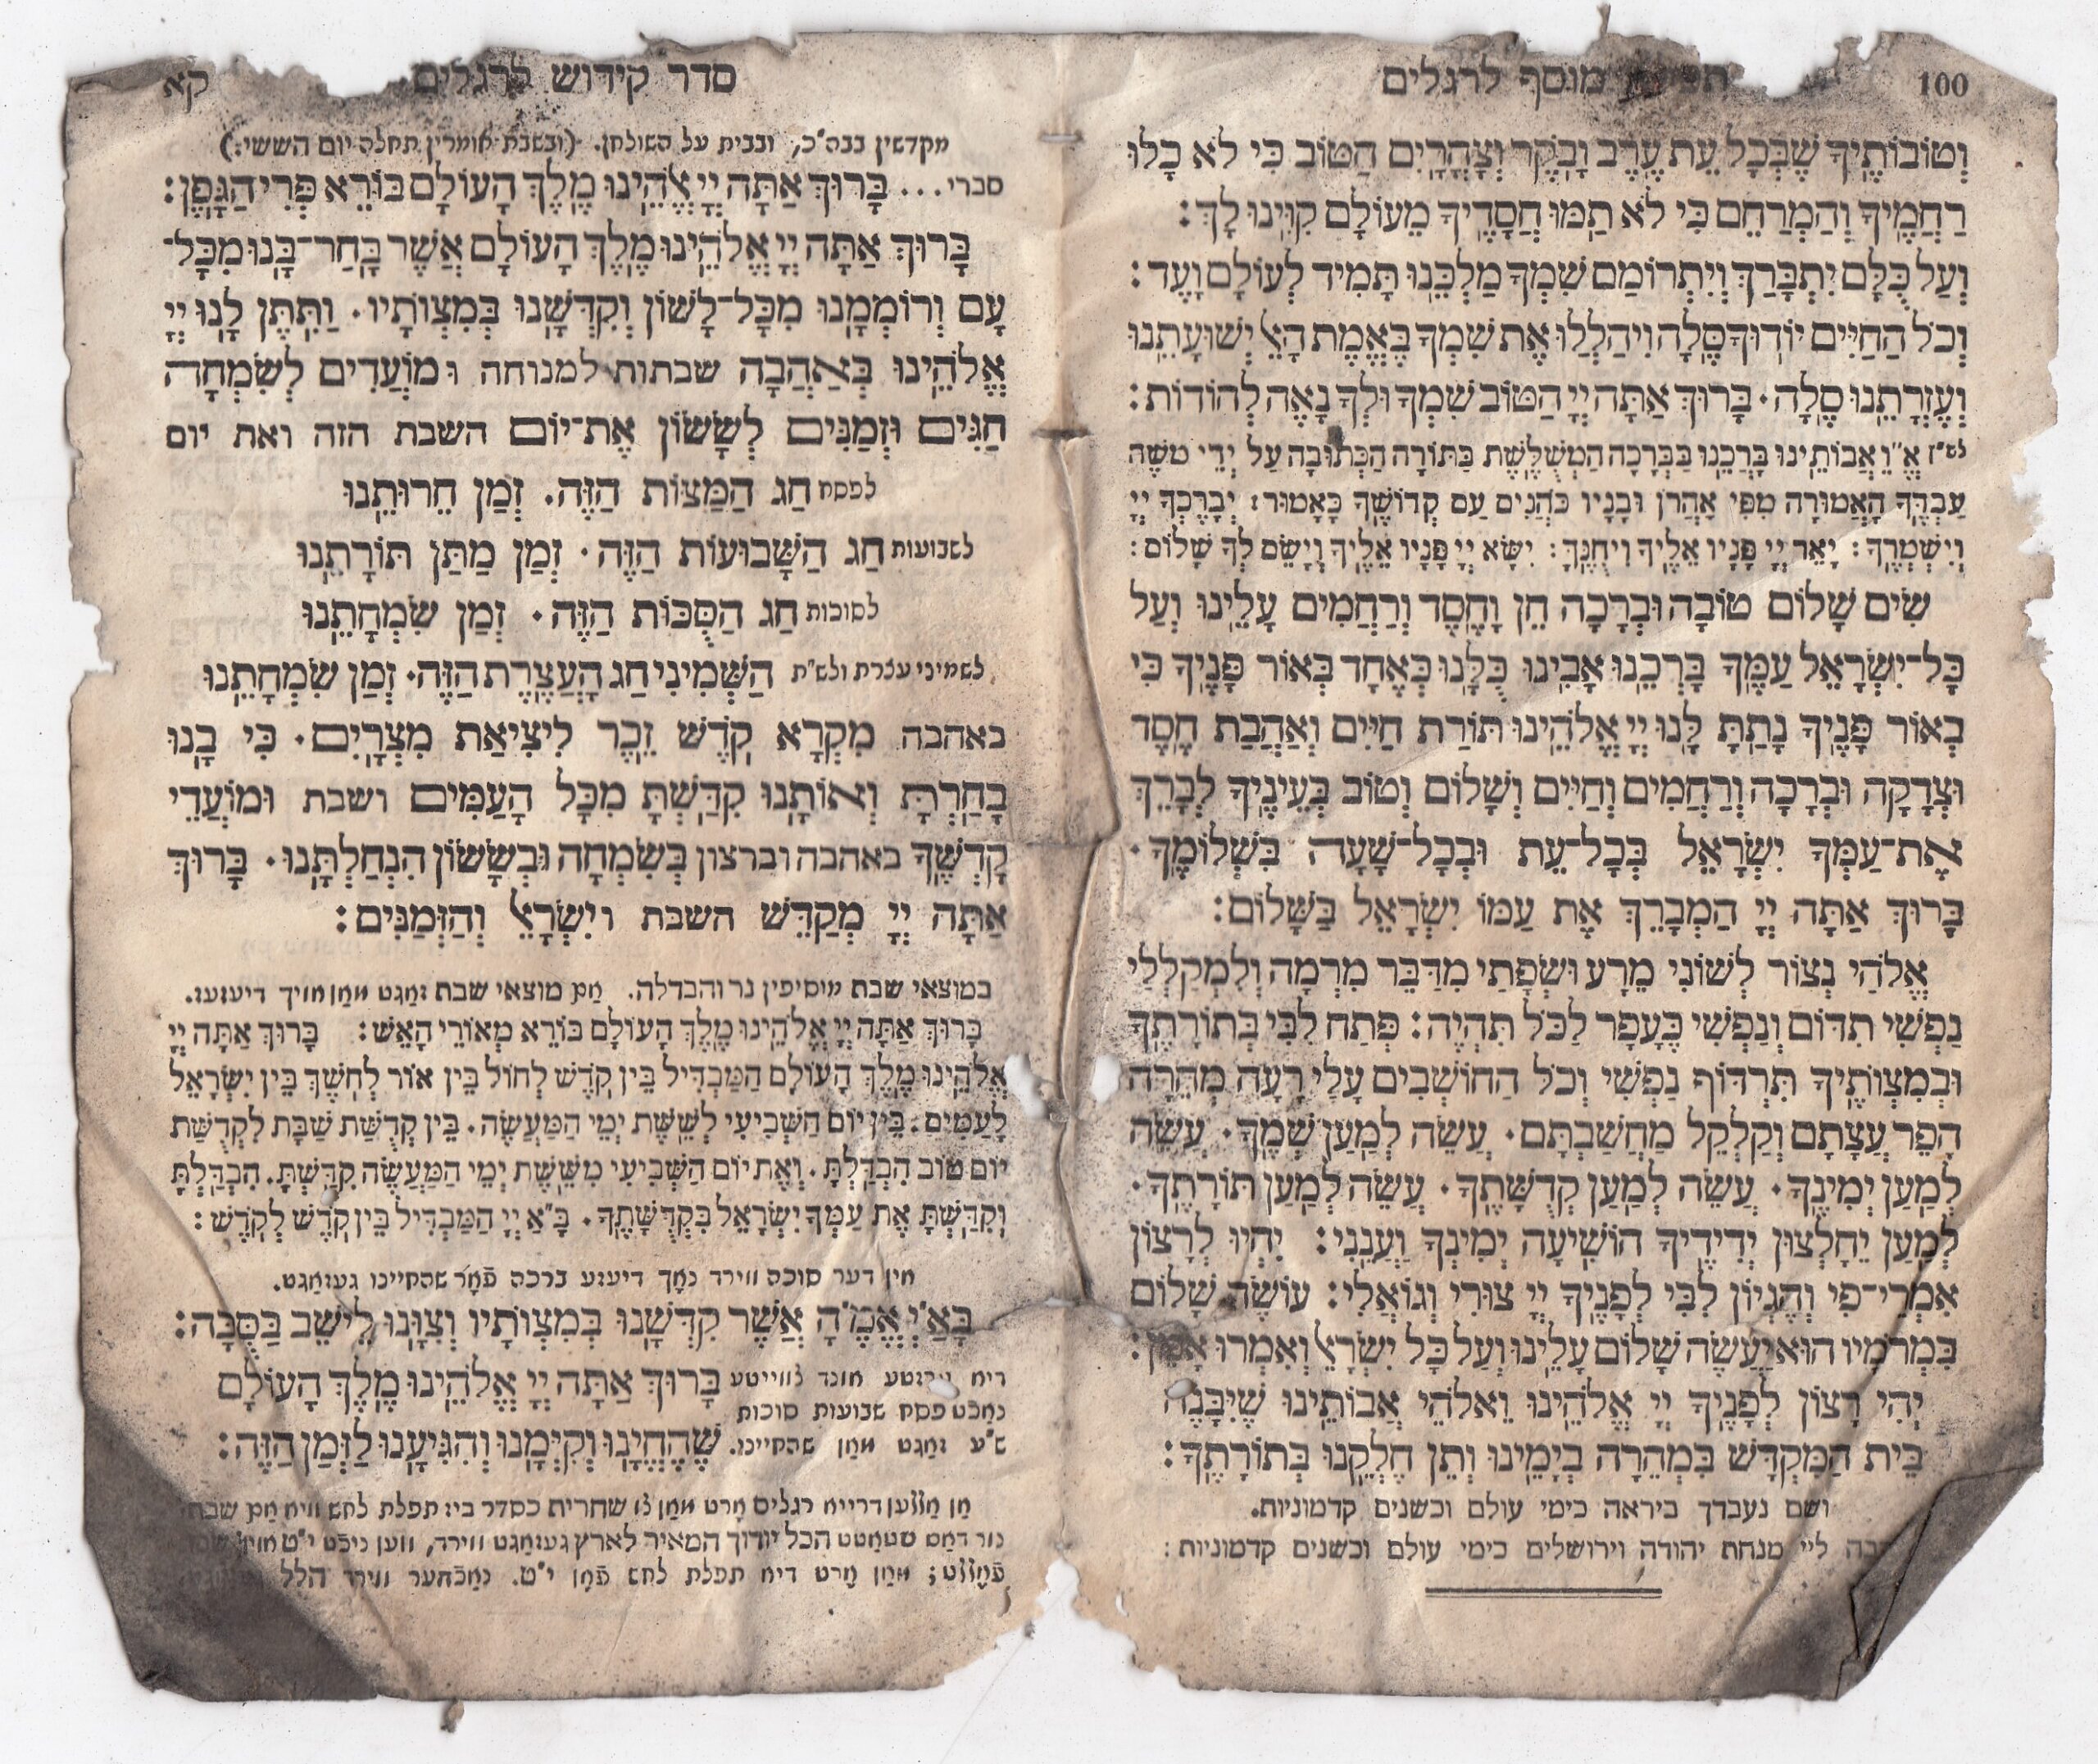 100
מוסף לרגלים
וְטוֹבוֹתֶֽיךָ שֶׁבְּכָל עֵת עֶֽרֶב וָבֹֽקֶר וְצָהֳרָֽיִם הַטּוֹב כִּי לֹא כָלוּ
רַחֲמֶֽיךָ וְהַמְרַחֵם כִּי לֹא תַֽמּוּ חֲסָדֶֽיךָ מֵעוֹלָם קִוִּֽינוּ לָךְ:
וְעַל כֻּלָּם יִתְבָּרַךְ וְיִתְרוֹמַם שִׁמְךָ מַלְכֵּֽנוּ תָּמִיד לְעוֹלָם וָעֶד:
וְכֹל הַחַיִּים יוֹדֽוּךָ סֶּֽלָה וִיהַלְלוּ אֶת שִׁמְךָ בֶּאֱמֶת הָאֵל יְשׁוּעָתֵֽנוּ
וְעֶזְרָתֵֽנוּ סֶֽלָה. בָּרוּךְ אַתָּה יְיָ הַטּוֹב שִׁמְךָ וּלְךָ נָאֶה לְהוֹדוֹת:
לש״ז אֱ״וֵ אֲבוֹתֵֽינוּ בָּרְכֵֽנוּ בַּבְּרָכָה הַמְשֻׁלֶּֽשֶׁת בַּתּוֹרָה הַכְּתוּבָה עַל יְדֵי משֶׁה
עַבְדֶּֽךָ הָאֲמוּרָה מִפִּי אַהֲרֹן וּבָנָיו כֹּהֲנִים עַם קְדוֹשֶֽׁךָ כָּאָמוּר: יְבָרֶכְךָ יְיָ
וְיִשְׁמְרֶֽךָ: יָאֵר יְיָ פָּנָיו אֵלֶֽיךָ וִיחֻנֶּֽךָּ: יִשָּׂא יְיָ פָּנָיו אֵלֶֽיךָ וְיָשֵׂם לְךָ שָׁלוֹם:
שִׂים שָׁלוֹם טוֹבָה וּבְרָכָה חֵן וָחֶֽסֶד וְרַחֲמִים עָלֵֽינוּ וְעַל
כָּל־יִשְׂרָאֵל עַמֶּֽךָ בָּרְכֵֽנוּ אָבִֽינוּ כֻּלָּֽנוּ כְּאֶחָד בְּאוֹר פָּנֶֽיךָ כִּי
בְאוֹר פָּנֶֽיךָ נָתַֽתָּ לָּֽנוּ יְיָ אֱלֹהֵֽינוּ תּוֹרַת חַיִּים וְאַהֲבַת חֶֽסֶד
וּצְדָקָה וּבְרָכָה וְרַחֲמִים וְחַיִּים וְשָׁלוֹם וְטוֹב בְּעֵינֶֽיךָ לְבָרֵךְ
אֶת־עַמְּךָ יִשְׂרָאֵל בְּכָל־עֵת וּבְכָל־שָׁעָה בִּשְׁלוֹמֶֽךָ.
בָּרוּךְ אַתָּה יְיָ הַמְבָרֵךְ אֶת עַמּוֹ יִשְׂרָאֵל בַּשָּׁלוֹם:
אֱלֹהַי נְצוֹר לְשׁוֹנִי מֵרָע וּשְׂפָתַי מִדַּבֵּר מִרְמָה וְלִמְקַלְלַי
נַפְשִׁי תִדּוֹם וְנַפְשִׁי כֶּעָפָר לַכֹּל תִּהְיֶה: פְּתַח לִבִּי בְּתוֹרָתֶֽךָ
וּבְמִצְוֹתֶֽיךָ תִּרְדּוֹף נַפְשִׁי וְכֹל הַחוֹשְׁבִים עָלַי רָעָה מְהֵרָה
הָפֵר עֲצָתָם וְקַלְקֵל מַחֲשַׁבְתָּם. עֲשֵׂה לְמַֽעַן שְׁמֶֽךָ. עֲשֵׂה
לְמַֽעַן יְמִינֶֽךָ. עֲשֵׂה לְמַֽעַן קְדֻשָּׁתֶֽךָ. עֲשֵׂה לְמַֽעַן תּוֹרָתֶֽךָ.
לְמַֽעַן יֵחָלְצוּן יְדִידֶֽיךָ הוֹשִֽׁיעָה יְמִינְךָ וַעֲנֵֽנִי: יִהְיוּ לְרָצוֹן
אִמְרֵי־פִי וְהֶגְיוֹן לִבִּי לְפָנֶֽיךָ יְיָ צוּרִי וְגוֹאֲלִי: עוֹשֶׂה שָׁלוֹם
בִּמְרֹמָיו הוּא יַעֲשֶׂה שָׁלוֹם עָלֵֽינוּ וְעַל כָּל יִשְׂרָאֵל וְאִמְרוּ אָמֵן:
יְהִי רָצוֹן לְפָנֶֽיךָ יְיָ אֱלֹהֵֽינוּ וֵאלֹהֵי אֲבוֹתֵֽינוּ שֶׁיִּבָּנֶה
בֵּית הַמִּקְדָּשׁ בִּמְהֵרָה בְיָמֵֽינוּ וְתֵן חֶלְקֵֽנוּ בְּתוֹרָתֶֽךָ:
ושם נעבדך ביראה כימי עולם וכשנים קדמוניות.
ליי מנחת יהודה וירושלים כימי עולם וכשנים קדמוניות:
סדר קידוש לרגלים
קא
מקדשין בבה״כ, ובבית על השולחן. (ובשבת אומרין תחלה יום הששי:)
סברי... בָּרוּךְ אַתָּה יְיָ אֱלֹהֵֽינוּ מֶֽלֶךְ הָעוֹלָם בּוֹרֵא פְּרִי הַגָּֽפֶן:
בָּרוּךְ אַתָּה יְיָ אֱלֹהֵֽינוּ מֶֽלֶךְ הָעוֹלָם אֲשֶׁר בָּֽחַר־בָּֽנוּ מִכָּל־
עָם וְרוֹמְמָֽנוּ מִכָּל־לָשׁוֹן וְקִדְּשָֽׁנוּ בְּמִצְוֹתָיו. וַתִּתֶּן לָֽנוּ יְיָ
אֱלֹהֵֽינוּ בְּאַהֲבָה שבתות למנוחה וּ מוֹעֲדִים לְשִׂמְחָה
חַגִּים וּזְמַנִּים לְשָׂשׂוֹן אֶת־יוֹם השבת הזה ואת יום
לפסח חַג הַמַּצּוֹת הַזֶּה. זְמַן חֵרוּתֵֽנוּ
לשבועות חַג הַשָּׁבוּעוֹת הַזֶּה. זְמַן מַתַּן תּוֹרָתֵֽנוּ
לסוכות חַג הַסֻּכּוֹת הַזֶּה. זְמַן שִׂמְחָתֵֽנוּ
לשמיני עצרת ולש״ת הַשְּׁמִינִי חַג הָעֲצֶֽרֶת הַזֶּה. זְמַן שִׂמְחָתֵֽנוּ
באהבה מִקְרָא קֹֽדֶשׁ זֵֽכֶר לִיצִיאַת מִצְרָֽיִם. כִּי בָֽנוּ
בָחַֽרְתָּ וְאוֹתָֽנוּ קִדַּֽשְׁתָּ מִכָּל הָעַמִּים ושבת וּמוֹעֲדֵי
קָדְשֶֽׁךָ באהבה וברצון בְּשִׂמְחָה וּבְשָׂשׂוֹן הִנְחַלְתָּֽנוּ. בָּרוּךְ
אַתָּה יְיָ מְקַדֵּשׁ השבת ויִשְׂרָאֵל וְהַזְּמַנִּים:
במוצאי שבת מוסיפין נר והבדלה. אַם מוצאי שבת זאָגט מאַן אויך דיעזעז.
בָּרוּךְ אַתָּה יְיָ אֱלֹהֵֽינוּ מֶֽלֶךְ הָעוֹלָם בּוֹרֵא מְאוֹרֵי הָאֵשׁ: בָּרוּךְ אַתָּה יְיָ
אֱלֹהֵֽינוּ מֶֽלֶךְ הָעוֹלָם הַמַּבְדִּיל בֵּין קֹֽדֶשׁ לְחוֹל בֵּין אוֹר לְחֹֽשֶׁךְ בֵּין יִשְׂרָאֵל
לָעַמִּים. בֵּין יוֹם הַשְּׁבִיעִי לְשֵֽׁשֶׁת יְמֵי הַמַּעֲשֶׂה. בֵּין קְדֻשַּׁת שַׁבָּת לִקְדֻשַּׁת
יוֹם טוֹב הִבְדַּֽלְתָּ. וְאֶת יוֹם הַשְּׁבִיעִי מִשֵּֽׁשֶׁת יְמֵי הַמַּעֲשֶׂה קִדַּֽשְׁתָּ. הִבְדַּֽלְתָּ
וְקִדַּֽשְׁתָּ אֶת עַמְּךָ יִשְׂרָאֵל בִּקְדֻשָּׁתֶֽךָ. בָּ״אַ יְיָ הַמַּבְדִּיל בֵּין קֹֽדֶשׁ לְקֹֽדֶשׁ:
אין דער סוכה ווירד נאָך דיעזע ברכה פֿאָר שהחיינו געזאַגט.
בָּאַ״יְ אֱמֶ״הָ אֲשֶׁר קִדְּשָֽׁנוּ בְּמִצְוֹתָיו וְצִוָּֽנוּ לֵישֵׁב בַּסֻּכָּה:
דיא ערזטע אונד צווייטע בָּרוּךְ אַתָּה יְיָ אֱלֹהֵֽינוּ מֶֽלֶךְ הָעוֹלָם
נאַכט פסח שבועות סוכות
ש״ע זאַגט מאַן שהחיינו. שֶׁהֶחֱיָֽנוּ וְקִיְּמָֽנוּ וְהִגִּיעָֽנוּ לַזְּמַן הַזֶּה:
אַן אַללען דרייא רגלים אָרט מאַן צו שחרית כסדר ביז תפלת לחש וויא אַם שבת
נור דאַס שטאַטט הכל יודוך המאיר לארץ געזאַגט ווירד, ווען ניכט י״ט אויף שבת
פֿאָללט; מאַן אָרט דיא תפלת לחש פֿאָן י״ט. נאַכהער ווירד הלל